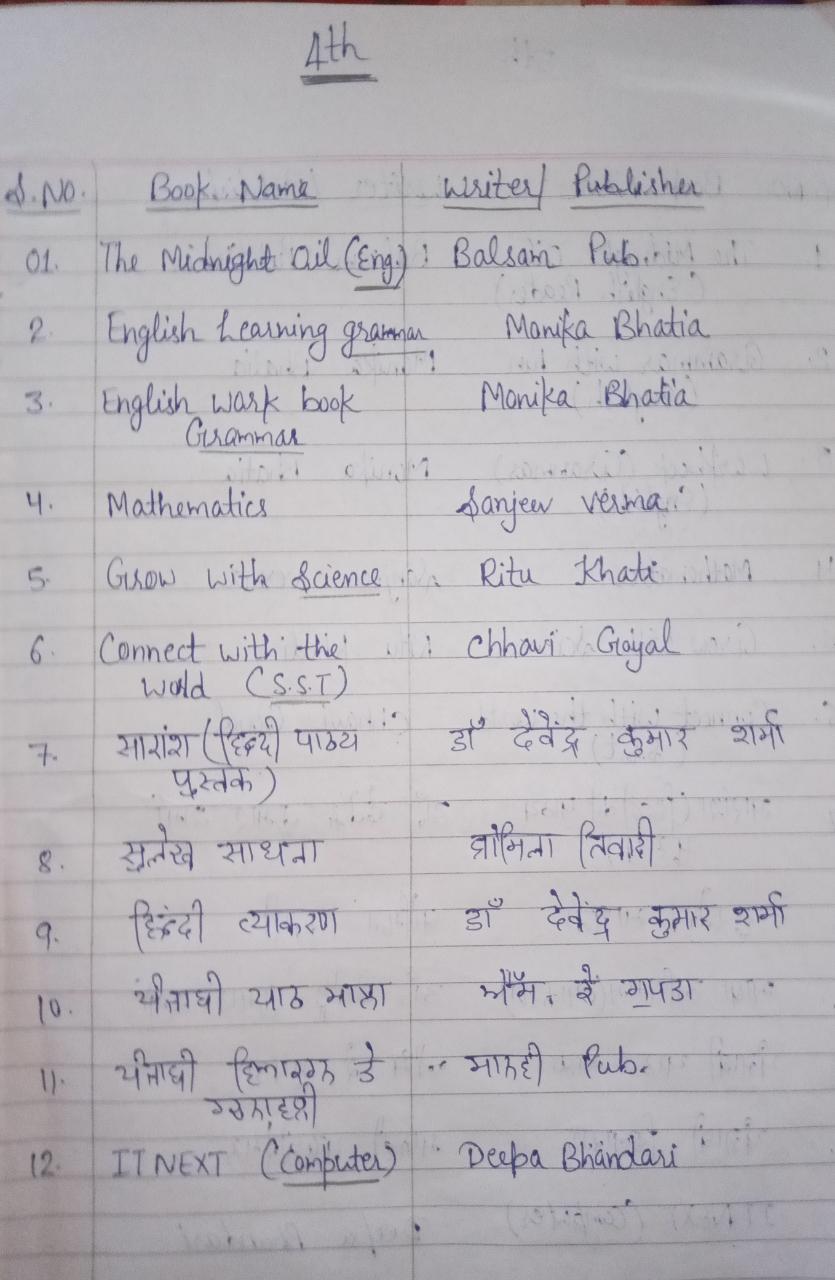 4th
S.No. Book Name Writer/ Publisher
01. The Midnight Oil (Eng.) : Balsam Pub.
2. English Learning grammar Monika Bhatia
3. English work book Monika Bhatia
Grammar
4. Mathematics Sanjeev Verma
5. Grow with Science Ritu Khati
6. Connect with the : Chhavi Goyal
world (S.S.T)
7. सारांश (हिन्दी पाठ्य डॉ देवेंद्र कुमार शर्मा
पुस्तक)
8. सुलेख साधना तिवारी
9. हिन्दी व्याकरण डॉ देवेंद्र कुमार शर्मा
10. ਪੰਜਾਬੀ ਪਾਠ ਮਾਲਾ ਐੱਮ. ਕੇ ਗੁਪਤਾ
11. ਪੰਜਾਬੀ ਵਿਆਕਰਣ ਤੇ Pub.
12. IT NEXT (Computer) Deepa Bhandari